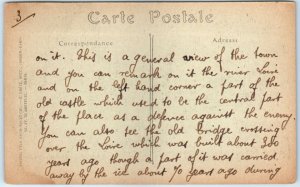 3
Carte Postale
Correspondance
Adresse
on it. This is a general view of the town
and you can remark on it the river Loire
and on the left hand corner a part of the
old castle which used to be the central part
of the place as a defence against the enemy.
You can also see the old bridge crossing
over the Loire which was built about 200
years ago though a part of it was carried
away by the ice about 70 years ago during